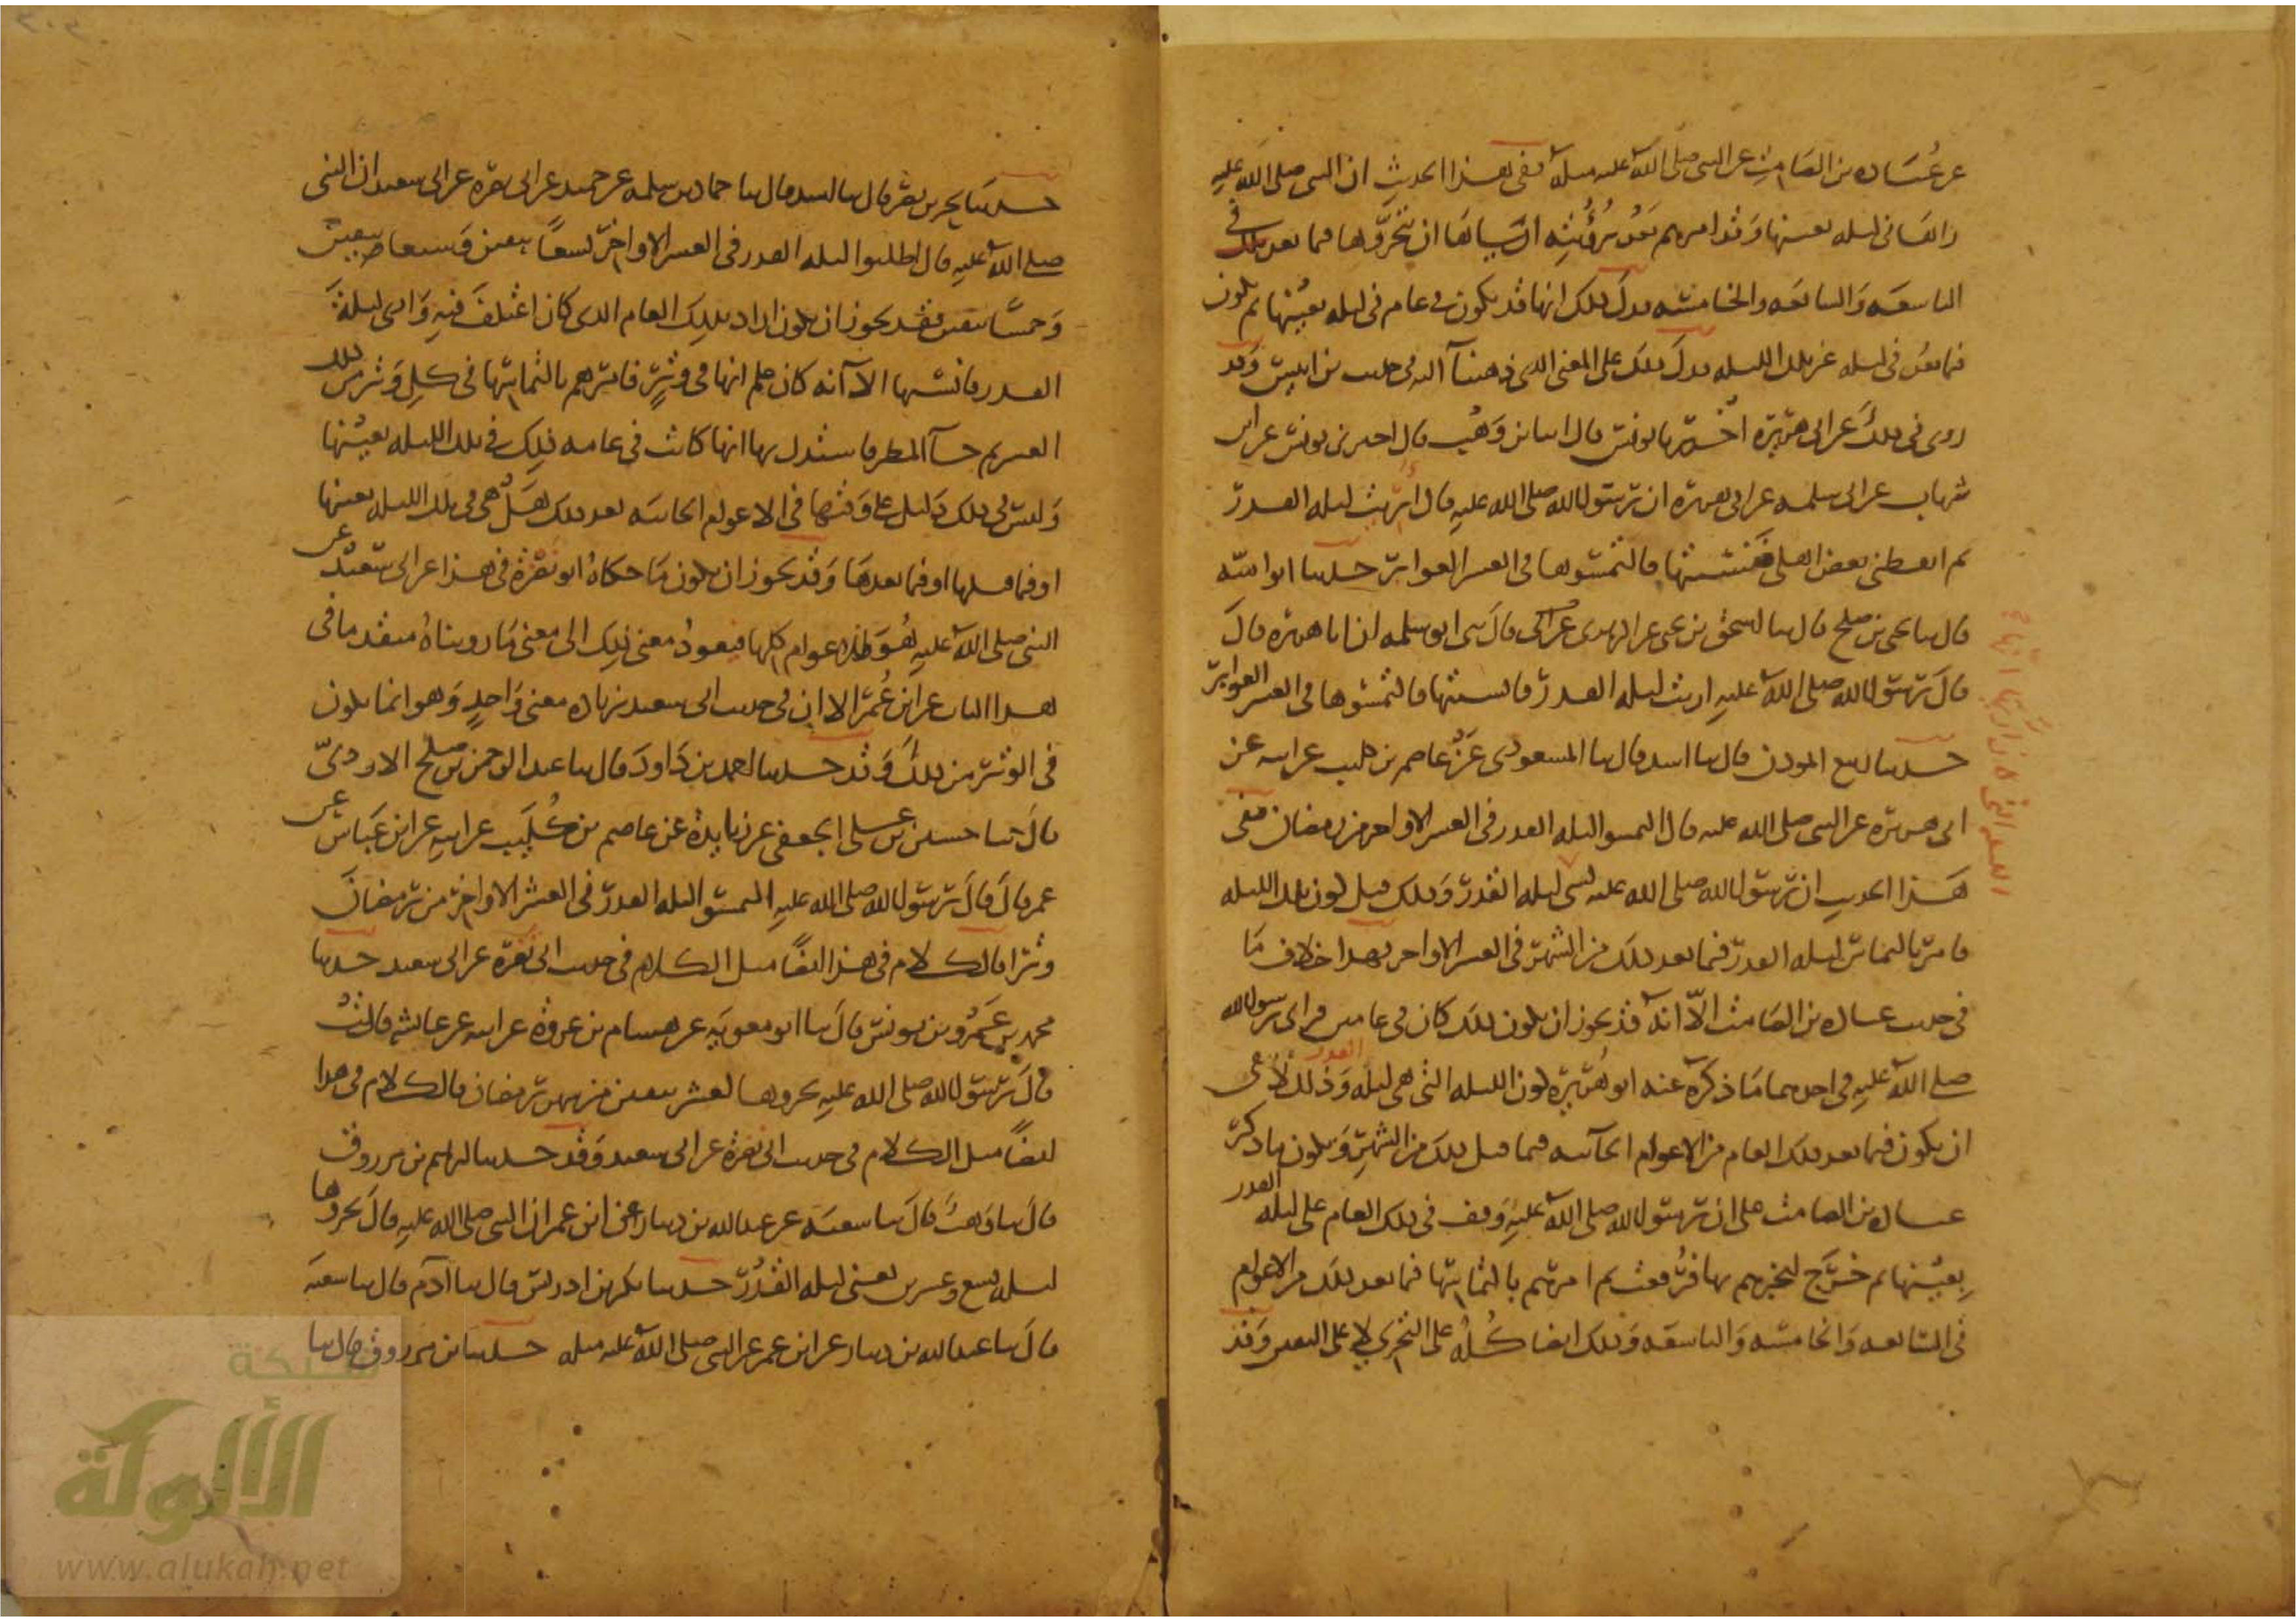 عن عبادة بن الصامت عن النبي صلى الله عليه مثله ففي هذا الحديث ان النبي صلى الله عليه
راها في ليله بعينها وقد امرهم بعد رؤيته اياها ان يتحروها فيما بعد ذلك في
التاسعه والسابعه والخامسه فدل ذلك انها قد تكون في عام في ليله بعينها ثم تكون
فيما بعد في ليله غير تلك الليله فدل ذلك على المعنى الذي ذهبنا اليه في حديث بن انيس وقد
روى في ذلك عن ابي هريرة اخبرنا يونس قال انا بن وهب قال اخبرني يونس عن ابن
شهاب عن ابي سلمه عن ابي هريره ان رسول الله صلى الله عليه قال اريت ليله القدر
ثم ايقظني بعض اهلي فنسيتها فالتمسوها في العشر الغوابر حدثنا ابو اميه
قال ثنا يحيى بن صالح قال ثنا اسحق بن يحيى عن الزهري قال ثني ابو سلمه ان ابا هريره قال
قال رسول الله صلى الله عليه اريت ليله القدر فانسيتها فالتمسوها في العشر الغوابر
حدثنا ربيع الموذن قال ثنا اسد قال ثنا المسعودي عن عاصم بن كليب عن ابيه عن
ابي هريره عن النبي صلى الله عليه قال التمسوا ليله القدر في العشر الاواخر من رمضان ففي
هذا الحديث ان رسول الله صلى الله عليه نسي ليله القدر وذلك قبل كون تلك الليله
فامر بالتماس ليله القدر فيما بعد ذلك من الشهر في العشر الاواخر فهذا خلاف ما
في حديث عباده بن الصامت الا انه قد يجوز ان يكون ذلك كان في عامين فراى رسول الله
صلى الله عليه في احدهما ما ذكره عنه ابو هريره كون الليله التي هي ليله القدر وذلك لا ينفي
ان يكون فيما بعد ذلك العام من الاعوام الجائيه فيما قبل ذلك من الشهر ويكون ما ذكر
عباده بن الصامت على ان رسول الله صلى الله عليه وقف في ذلك العام على ليله القدر
بعينها ثم خرج ليخبرهم بها فرفعت ثم امرهم بالتماسها فيما بعد ذلك من الاعوام
في السابعه والخامسه والتاسعه وذلك ايضا كله على التحري لا على اليقين وقد
حدثنا بحر بن نصر قال ثنا اسد قال ثنا حماد بن سلمه عن حميد عن ابي نضره عن ابي سعيد ان النبي
صلى الله عليه قال اطلبوا ليله القدر في العشر الاواخر تسعا يبقين وسبعا يبقين
وخمسا يبقين فقد يجوز ان يكون اراد بذلك العام الذي كان اعتكف فيه واري ليلة
القدر فانسيها الا انه كان علم انها في وتر فامرهم بالتماسها في كل وتر من ذلك
العشر ثم جاء المطر فاستدل بها انها كانت في عامه ذلك في تلك الليله بعينها
وليس في ذلك دليل على وقتها في الاعوام الجائيه بعد ذلك هل هي في تلك الليله بعينها
او فيما قبلها او فيما بعدها وقد يجوز ان يكون ما حكاه ابو نضرة في هذا عن ابي سعيد عن
النبي صلى الله عليه هو في الاعوام كلها فيعود معنى ذلك الى معنى ما رويناه متقدما في
هذا الباب عن ابن عمر الا ان في حديث ابي سعيد زياده معنى واحد وهو انما يكون
في الوتر من ذلك وقد حدثنا احمد بن داود قال ثنا عبد الرحمن بن صالح الازدي
قال ثنا حسين بن علي الجعفي عن زايدة عن عاصم بن كليب عن ابيه عن ابن عباس عن
عمر قال قال رسول الله صلى الله عليه التمسوا ليله القدر في العشر الاواخر من رمضان
وترا فالكلام في هذا ايضا مثل الكلام في حديث ابي نضرة عن ابي سعيد حدثنا
محمد بن عمرو بن يونس قال ثنا ابو معويه عن هشام بن عروة عن ابيه عن عائشه قالت
قال رسول الله صلى الله عليه تحروها لعشر يبقين من شهر رمضان فالكلام في هذا
ايضا مثل الكلام في حديث ابي نضرة عن ابي سعيد وقد حدثنا ابراهيم بن مرزوق
قال ثنا وهب قال ثنا شعبه عن عبد الله بن دينار عن ابن عمر ان النبي صلى الله عليه قال تحروها
ليله سبع وعشرين يعني ليله القدر حدثنا بكر بن ادريس قال ثنا آدم قال ثنا شعبه
قال ثنا عبد الله بن دينار عن ابن عمر عن النبي صلى الله عليه مثله حدثنا بن مرزوق قال ثنا
شبكة
الألوكة
www.alukah.net